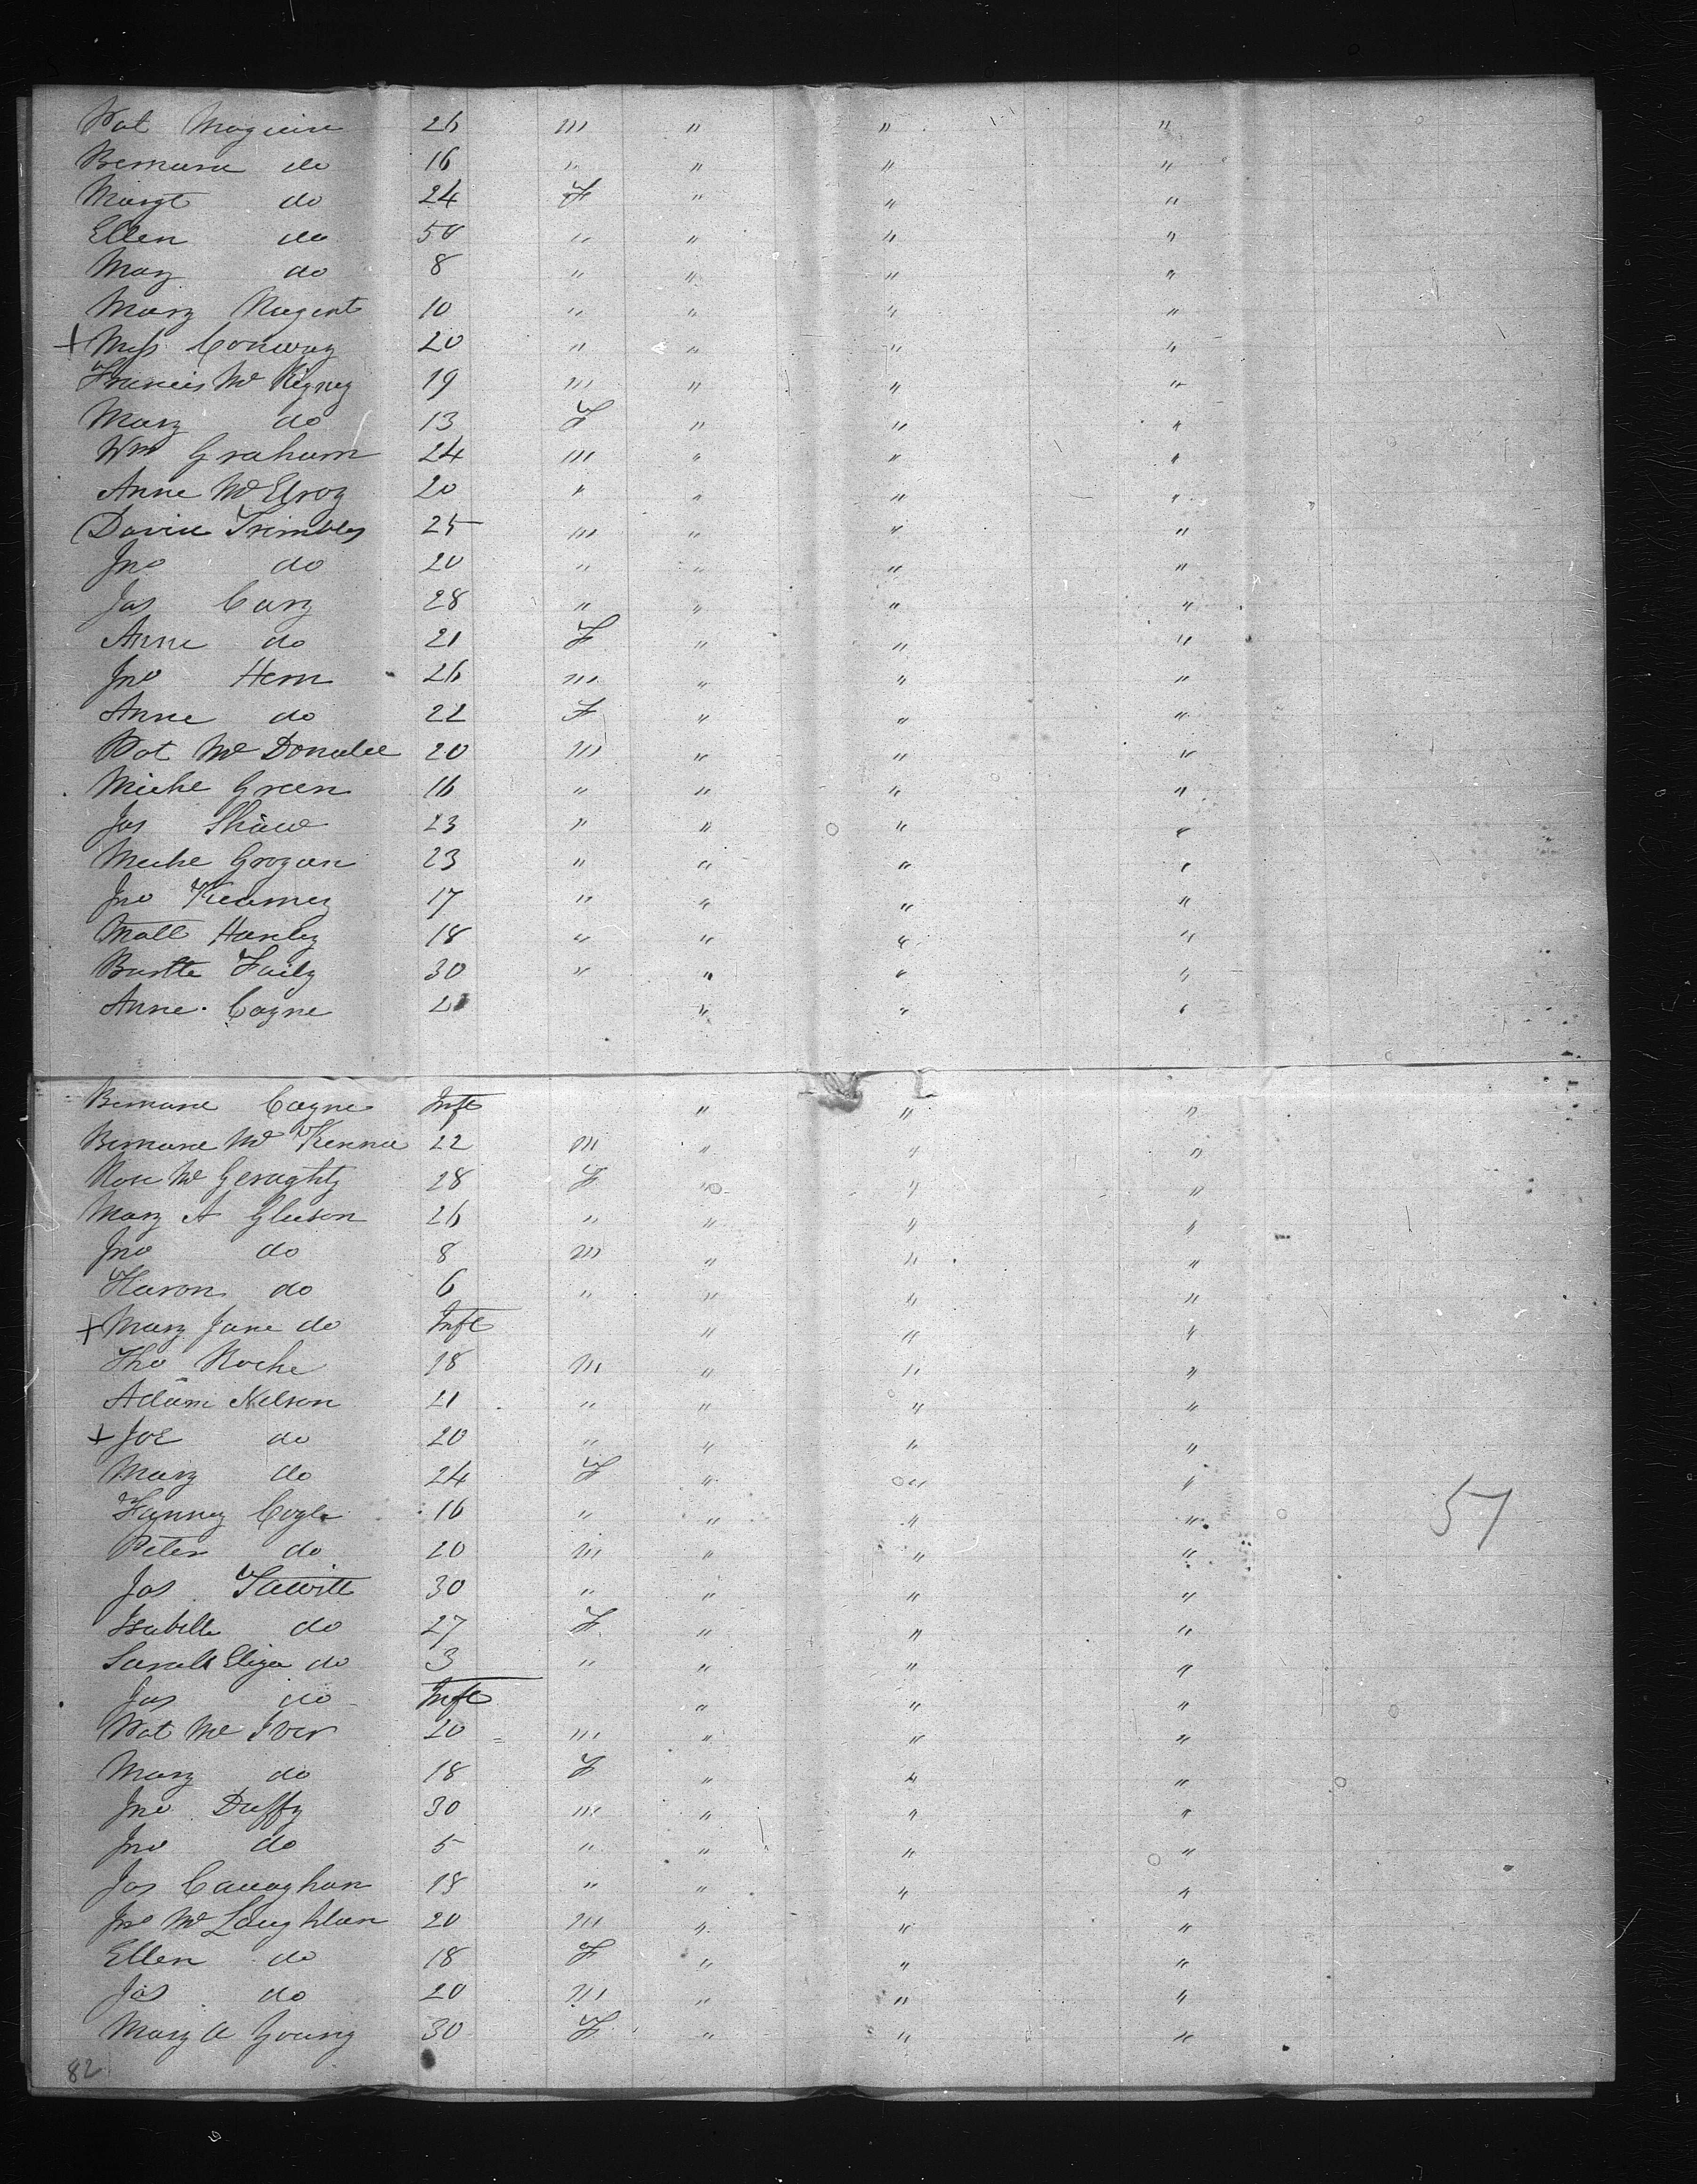 Pat Maguire 26 m " " "
Bernard do 16 " " " "
Margt do 24 F " " "
Ellen do 50 " " " "
Mary do 8 " " " "
Mary Nugent 10 " " " "
+ Miss Conway 20 " " " "
Francis Mc Kigney 19 m " " "
Mary do 13 F " " "
Wm Graham 24 m " " "
Anne Mc Elroy 20 " " " "
David Trimbley 25 m " " "
Jno do 20 " " " "
Jas Cary 28 " " " "
Anne do 21 F " " "
Jno Hern 26 m " " "
Anne do 22 F " " "
Pat Mc Donald 20 m " " "
Miche Green 16 " " " "
Jas Shaw 23 " " " "
Miche Grogan 23 " " " "
Jno Kearney 17 " " " "
Matt Hanley 18 " " " "
Faily 30 " " " "
Anne Coyne " " "
Bernard Coyne Inft " " "
Bernard Mc Kenna 22 m " " "
Rose Mc Geraghty 28 F " " "
Mary A Gleeson 26 " " " "
Jno do 8 m " " "
do 6 " " " "
+ Mary Jane do Inft " " "
Tho Roche 18 m " " "
Adam Nelson 21 " " " "
+ Joe do 20 " " " "
Mary do 24 F " " "
Fanny Coyle 16 " " " "
Peter do 20 m " " "
Jas 30 " " " "
Isabella do 27 F " " "
Sarah Eliza do 3 " " " "
Jas do Inft " " "
Pat Mc Iver 20 m " " "
Mary do 18 F " " "
Jno Duffy 30 m " " "
Jno do 5 " " " "
Jas Canaghan 18 " " " "
Jno Mc Laughlan 20 m " " "
Ellen do 18 F " " "
Jas do 20 m " " "
Mary A Young 30 F " " "
57
82